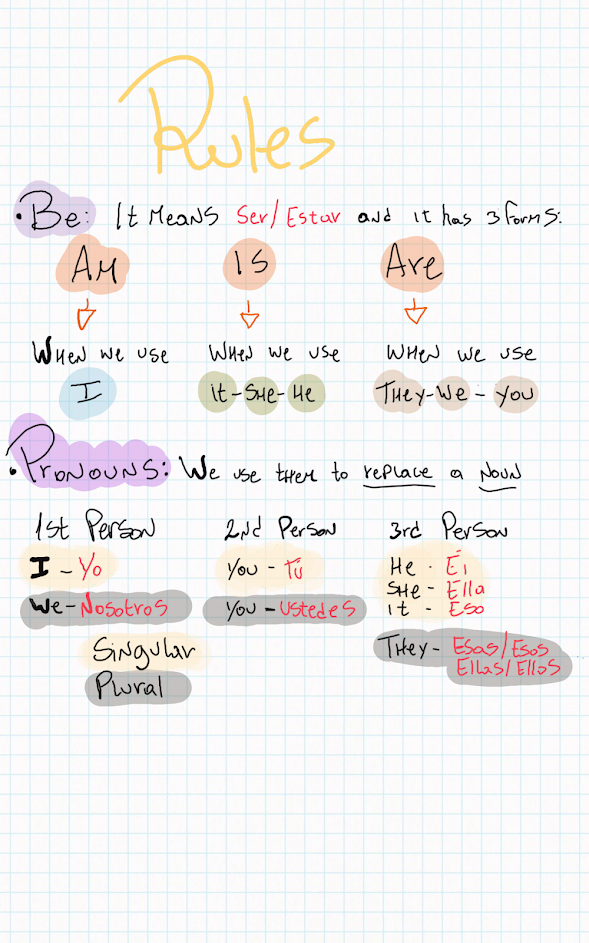 Rules
• Be: It means Ser/Estar and it has 3 forms:
Am Is Are
When we use When we use When we use
I it-She-He They-We-you
• Pronouns: We use them to replace a noun
1st Person 2nd Person 3rd Person
I - Yo You - Tú He - Él
She - Ella
It - Eso
We - Nosotros You - Ustedes They - Esas/Esos
Ellas/Ellos
Singular
Plural